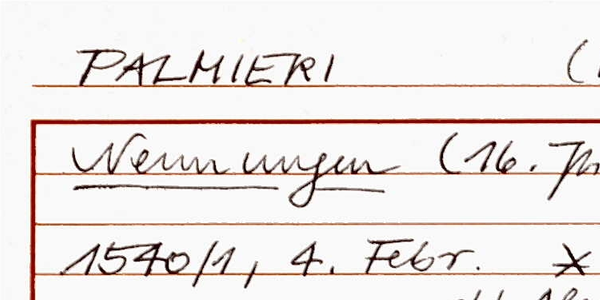 PALMIERI (
Nennungen (16. Jh
1540/1, 4. Febr. *